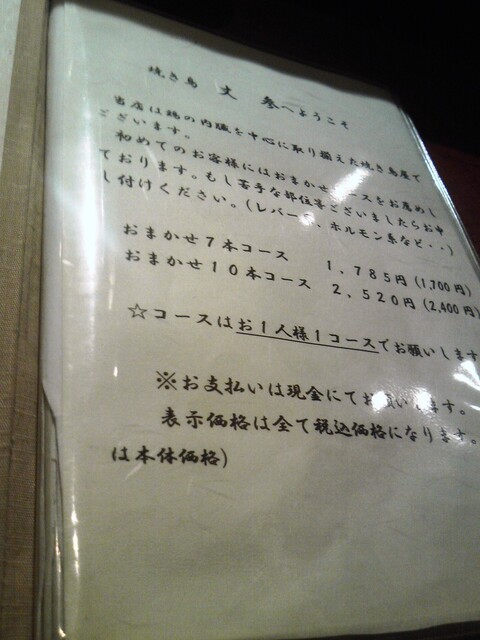 焼き鳥 文 参へようこそ
当店は鶏の内臓を中心に取り揃えた焼き鳥屋で
ございます。
初めてのお客様にはおまかせコースをお薦めし
ております。もし苦手な部位等ございましたらお申
し付けください。(レバー系、ホルモン系など・・)
おまかせ7本コース 1,785円(1,700円)
おまかせ10本コース 2,520円(2,400円)
☆コースはお1人様1コースでお願いします
※お支払いは現金にてお願いします。
表示価格は全て税込価格になります。
は本体価格)